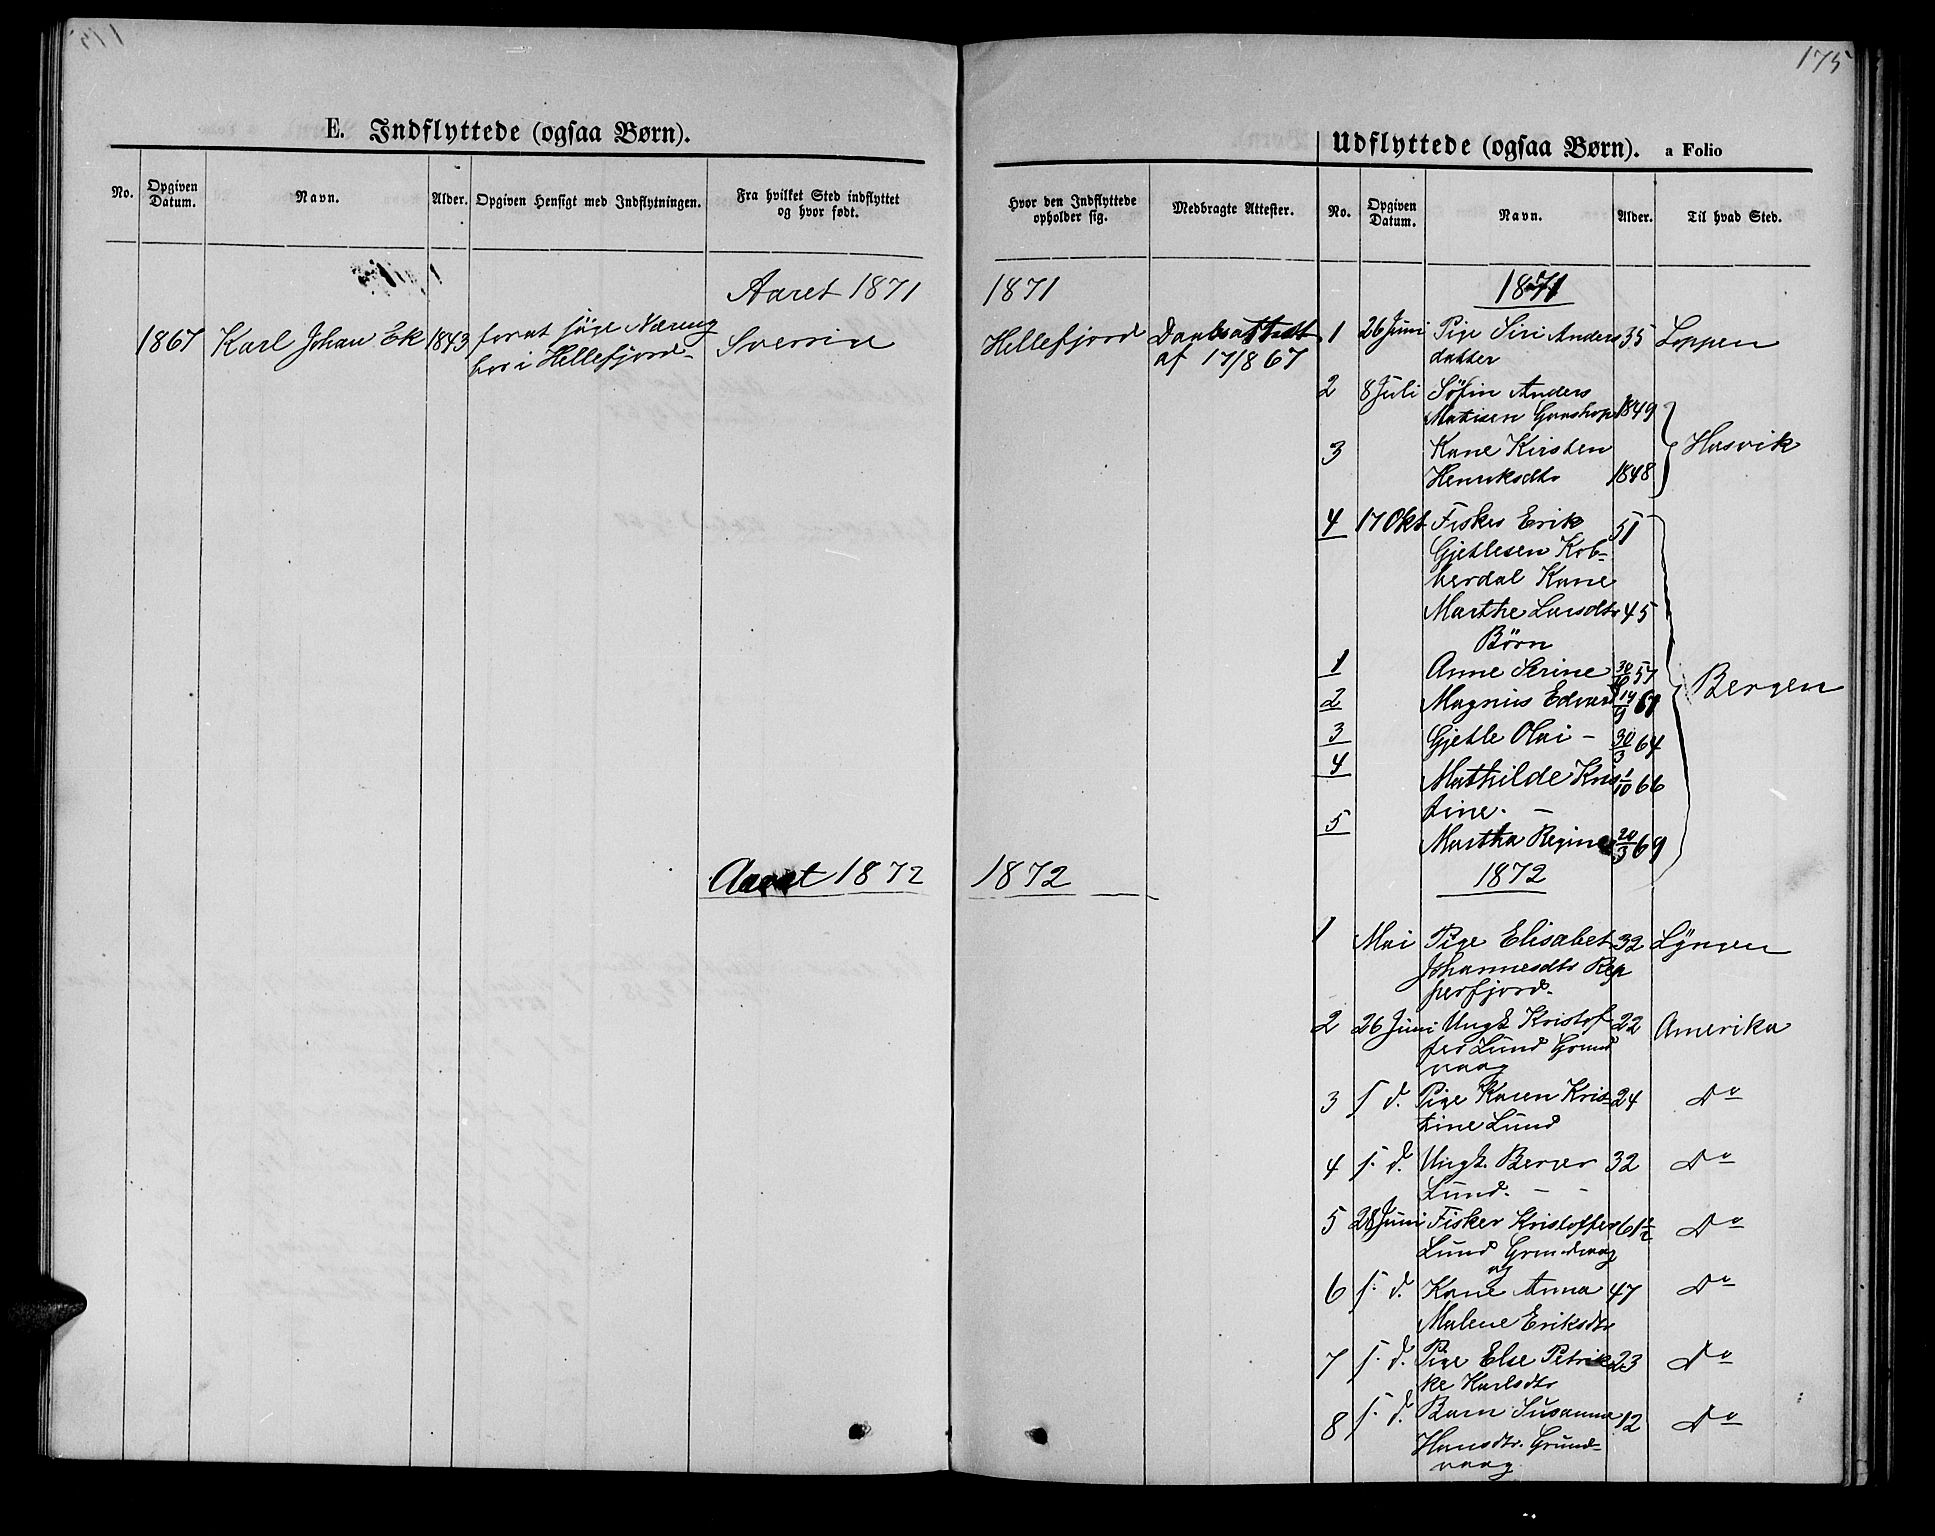 175
E. Indflyttede (ogsaa Børn).
No.
Opgiven Datum.
Navn.
Alder.
Opgiven Hensigt med Indflytningen.
Fra hvilket Sted indflyttet og hvor født.
Aaret 1871
1867 Karl Johan Ek 1843 forat søge Næring Sverrin
bor i Hellefjord
Aaret 1872
Hvor den Indflyttede opholder sig.
Medbragte Attester.
1871
Hellefjord Daabsattest
af 17/8 67
1872
Udflyttede (ogsaa Børn). a Folio
No.
Opgiven Datum.
Navn.
Alder.
Til hvad Sted.
1871
1 26 Juni Pige Siri Anders 35 Loppen
datter
2 8 Juli Søfin Anders
Matisen Gaashop 1849
Hasvik
3 Kone Kirsten
Henriksdtr 1848
4 17 Okt Fisker Erik 51
Gjetlesen Kob-
berdal Kone
Marthe Larsdtr 45
Børn
1 Anne Serine 57
Bergen
2 Magnus Edvard 14/9 61
3 Gjetle Olai - 30/3 64
4 Mathilde Kris 1/10 66
tine. -
5 Martha Regine 20/3 69
1872
1 Mai Pige Elisabet 32 Lyngen
Johannesdtr Rep
perfjord.
2 26 Juni Ungk. Kristof 22 Amerika
fer Lund Grund
vaag
3 s d. Pige Karen Kris- 24 Do
tine Lund
4 s. d. Ungk. Berger 32 Do
Lund. - -
5 28 Juni Fisker Kristoffer 61 1/2 Do
Lund Grundvaag
og
6 s. d. Kone Anna 47 Do
Malene Eriksdtr
7 s. d. Pige Else Petrik 23 Do
ke Karlsdtr
8 s. d. Barn Susanna 12 Do
Hansdtr. Grund-
vaag